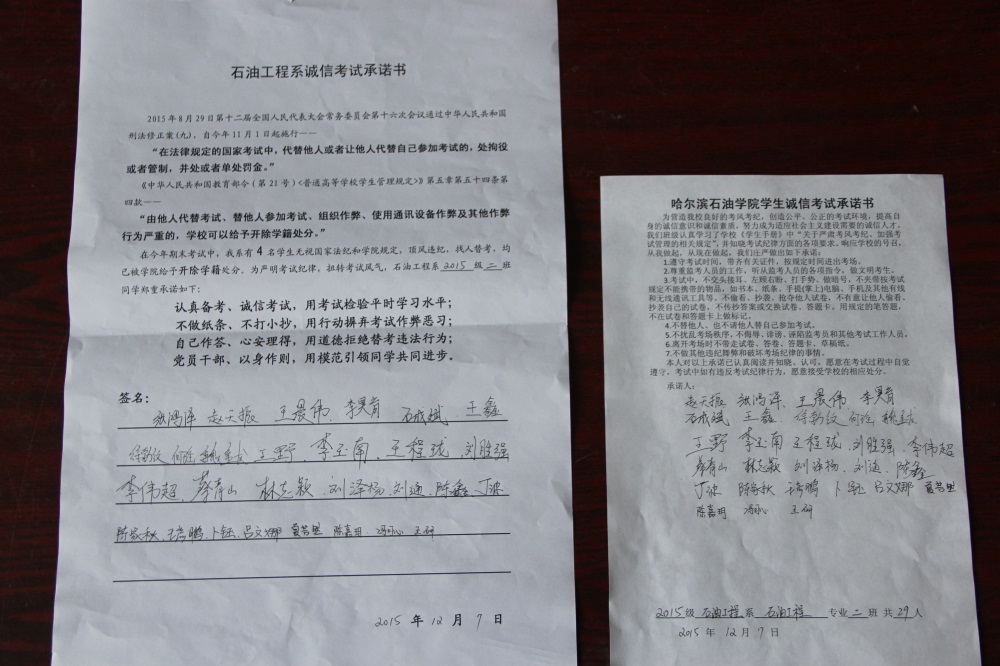 石油工程系诚信考试承诺书
2015年8月29日第十二届全国人民代表大会常务委员会第十六次会议通过中华人民共和国
刑法修正案(九),自今年11月1日起施行——
“在法律规定的国家考试中,代替他人或者让他人代替自己参加考试的,处拘役
或者管制,并处或者单处罚金。”
《中华人民共和国教育部令(第21号)<普通高等学校学生管理规定>》第五章第五十四条第
四款——
“由他人代替考试、替他人参加考试、组织作弊、使用通讯设备作弊及其他作弊
行为严重的,学校可以给予开除学籍处分。”
在今年期末考试中,我系有4名学生无视国家法纪和学院规定,顶风违纪,找人替考,均
已被学院给予开除学籍处分。为严明考试纪律,扭转考试风气,石油工程系2015级二班
同学郑重承诺如下:
认真备考、诚信考试,用考试检验平时学习水平;
不做纸条、不打小抄,用行动摒弃考试作弊恶习;
自己作答、心安理得,用道德拒绝替考违法行为;
党员干部、以身作则,用模范引领同学共同进步。
签名:
张鸿泽 赵天振 王晨伟 李昊育 石成斌 王鑫
丁野 李玉南 王程珑 刘胜强
李伟超 蔡青山 林志颖 刘泽杨 刘通 陈鑫 丁波
卜钰 吕文娜 陈嘉玥 冯心 王研
2015年12月7日
哈尔滨石油学院学生诚信考试承诺书
为营造我校良好的考风考纪,创造公平、公正的考试环境,提高自
身的诚信意识和诚信素质,努力成为适应社会主义建设需要的诚信人才。
我们班级认真学习了学校《学生手册》中“关于严肃考风考纪、加强考
试管理的相关规定”,并知晓考试纪律方面的各项要求。响应学校的号召,
从我做起,从现在做起,我们庄严做出如下承诺:
1.遵守考试时间,带齐有关证件,按规定时间进出考场。
2.尊重监考人员的工作,听从监考人员的各项指令,做文明考生。
3.考试中,不交头接耳、左顾右盼、打手势、做暗号,不夹带按考试
规定不能携带的物品,如书本、纸条、手提(掌上)电脑、手机及其他有线
和无线通讯工具等。不偷看、抄袭、抢夺他人试卷,不有意让他人偷看、
抄袭自己的试卷,不传抄答案或交换试卷、答题卡。用规定的笔答题,
不在试卷和答题卡上做标记。
4.不替他人、也不请他人替自己参加考试。
5.不扰乱考场秩序,不侮辱、诽谤、诬陷监考员和其他考试工作人员。
6.离开考场时不带走试卷、答卷、答题卡、草稿纸。
7.不做其他违纪舞弊和破坏考场纪律的事情。
本人对以上承诺已认真阅读并知晓、认可,愿意在考试过程中自觉
遵守,考试中如有违反考试纪律行为,愿意接受学校的相应处分。
承诺人:
赵天振 张鸿泽 王晨伟 李昊育
石成斌 王鑫
丁野 李玉南 王程珑 刘胜强 李伟超
蔡青山 林志颖 刘泽杨 刘通 陈鑫
丁波 卜钰 吕文娜
陈嘉玥 冯心 王研
2015级 石油工程系 石油工程 专业二班 共29人
2015年12月7日